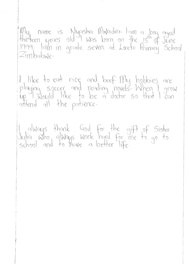 My name is Majaha Makaden I am a boy aged
thirteen years old I was born on the 15th of June
1999. I am in grade seven at Loreto Primary School
Zimbabwe
I like to eat rice and beef My hobbies are
playing soccer and reading novels When I grow
up I would like to be a doctor so that I can
attend all the patience.
I always thank God for the gift of Sister
Julia who always work hard for me to go to
school and to have a better life.